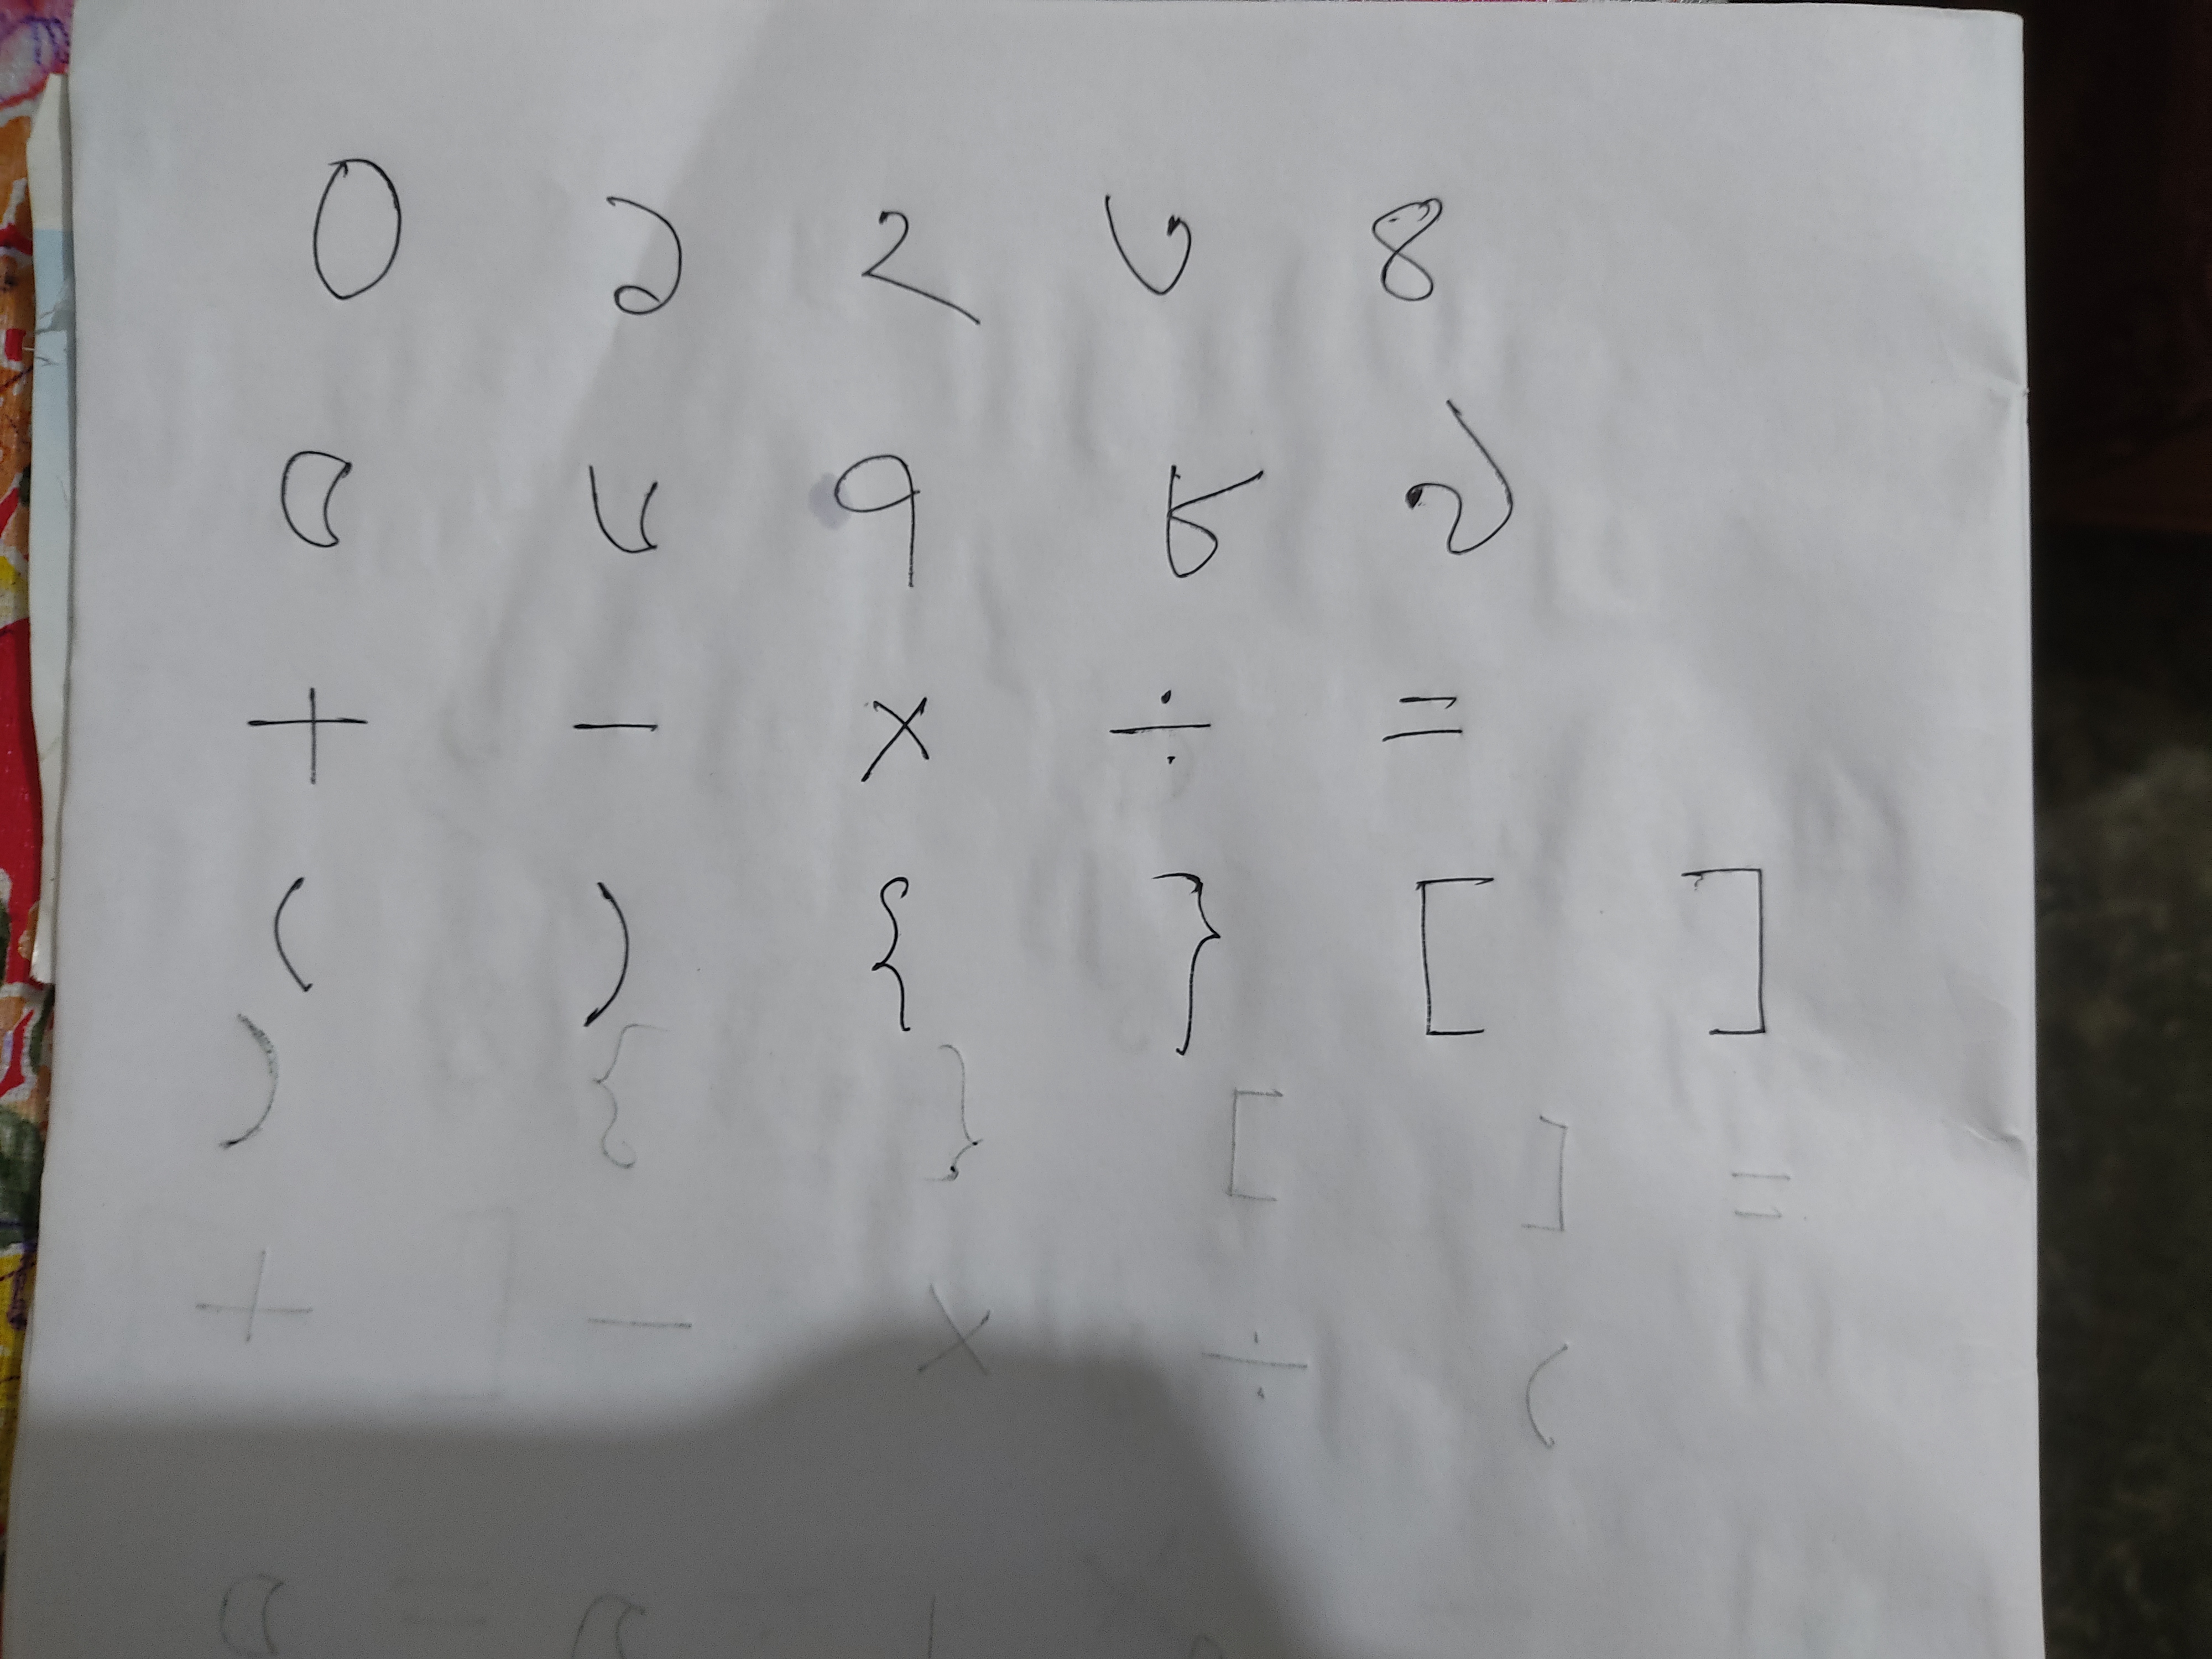 ০ ১ ২ ৩ ৪
৫ ৬ ৭ ৮ ৯
+ − × ÷ =
( ) { } [ ]
) { } [ ] =
+ − × ÷ (